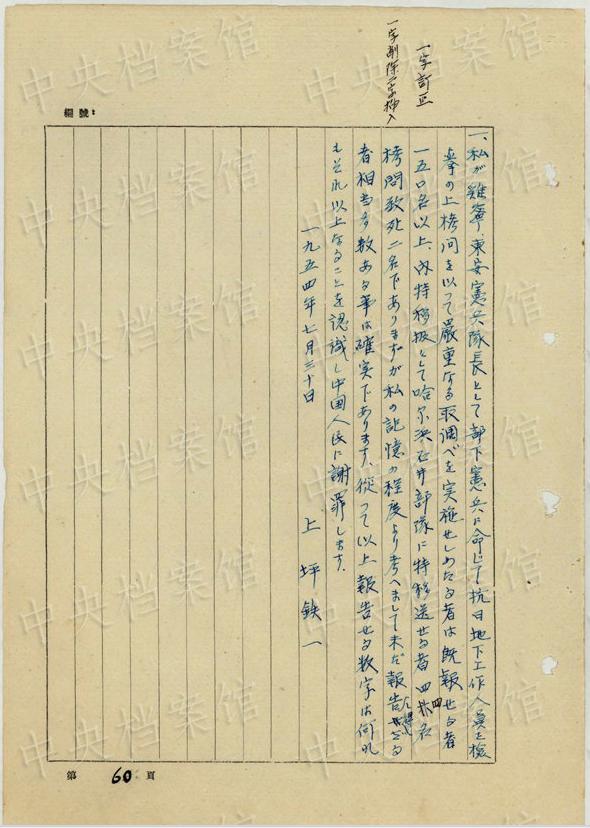 編號：
一字訂正
一字削除一字挿入
一、私が雞寧、東安憲兵隊長として部下憲兵に命じて抗日地下工作人員を檢
挙の上拷问を以って嚴重なる取調べを実施せしめたる者は既報せる者
一五〇名以上、内特移扱として哈尔浜石井部隊に特移送せる者四四名
拷問致死二名でありますが私の記憶の程度より考へまして未だ報告し得ざる
者相当多数ある事は確実であります、従って以上報告せる数字は何れ
もそれ以上なることを認識し中国人民に謝罪します。
一九五四年七月三十日
上坪鉄一
第 60 頁
中央档案馆